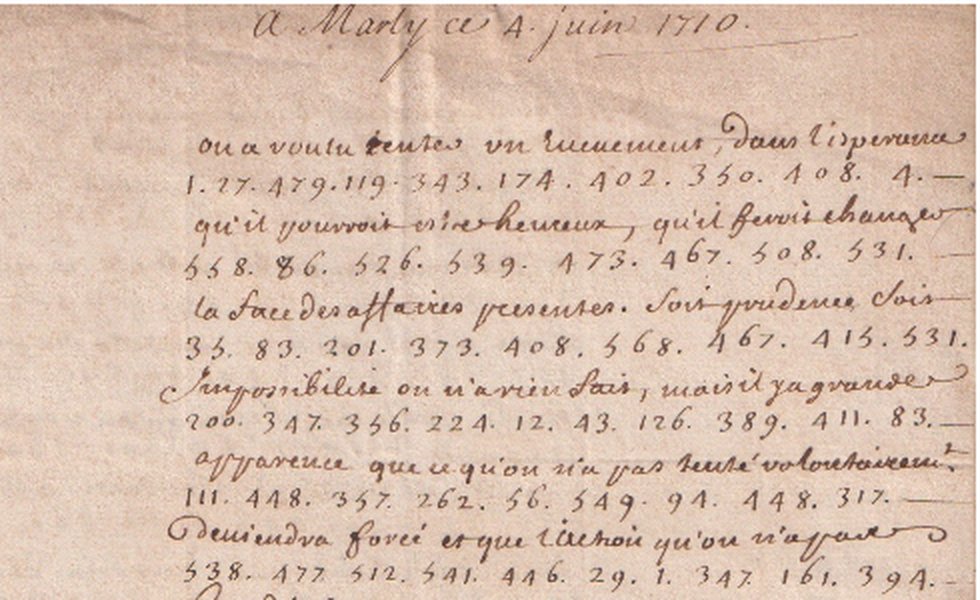 A Marly ce 4. juin 1710.
on a voulu tenter un Evenement, dans l'esperance
1. 27. 479. 119. 343. 174. 402. 350. 408. 4. —
qu'il pourroit estre heureux, qu'il feroit changer
558. 86. 526. 539. 473. 467. 508. 531. —
la face des affaires presentes. Soit prudence Soit
35. 83. 201. 373. 408. 568. 467. 415. 531.
Impossibilité on n'a rien fait, mais il y a grande
200. 347. 356. 224. 12. 43. 126. 389. 411. 83. —
apparence que ce qu'on n'a pas tenté volontairem.t
111. 448. 357. 262. 56. 549. 94. 448. 317. —
deviendra forcé et que l'action qu'on n'a pas
538. 477. 512. 541. 446. 29. 1. 347. 161. 394. —